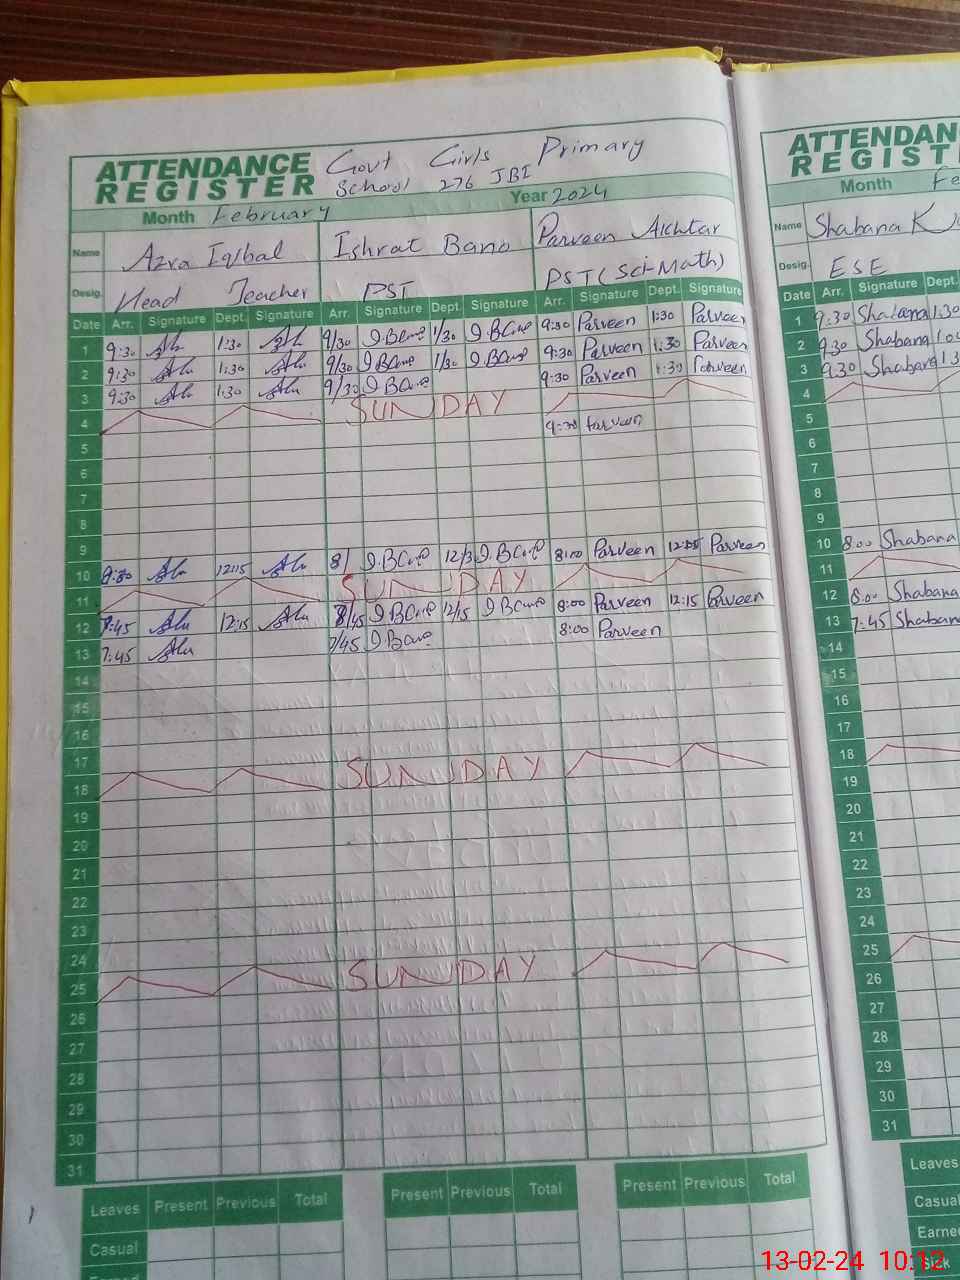 ATTENDANCE REGISTER Govt Girls Primary School 276 JBI
Month February Year 2024
Name Azra Iqbal Ishrat Bano Parveen Akhtar
Desig. Head Teacher PST PST (Sci-Math)
Date Arr. Signature Dept. Signature Arr. Signature Dept. Signature Arr. Signature Dept. Signature
1 9:30 1:30 9/30 1/30 9:30 Parveen 1:30 Parveen
2 9:30 1:30 9/30 1/30 9:30 Parveen 1:30 Parveen
3 9:30 1:30 9/30 9:30 Parveen 1:30 Parveen
4 SUNDAY
5 9:30 Parveen
6
7
8
9
10 12:15 8/ 12/3 8:00 Parveen Parveen
11 SUNDAY
12 12:15 12/15 8:00 Parveen 12:15 Parveen
13 7:45 7/45 8:00 Parveen
14
15
16
17
18 SUNDAY
19
20
21
22
23
24
25 SUNDAY
26
27
28
29
30
31
Leaves Present Previous Total Present Previous Total Present Previous Total
Casual
ATTENDAN
REGIST
Month Fe
Name Shabana K
Desig. ESE
Date Arr. Signature Dept.
1 9.30 Shabana 1:30
2 9.30 Shabana
3 9.30 Shabana 1.3
4
5
6
7
8
9
10 8:00 Shabana
11
12 8:00 Shabana
13 7:45 Shabana
14
15
16
17
18
19
20
21
22
23
24
25
26
27
28
29
30
31
Leaves
Casual
Earned
Sick
13-02-24 10:12